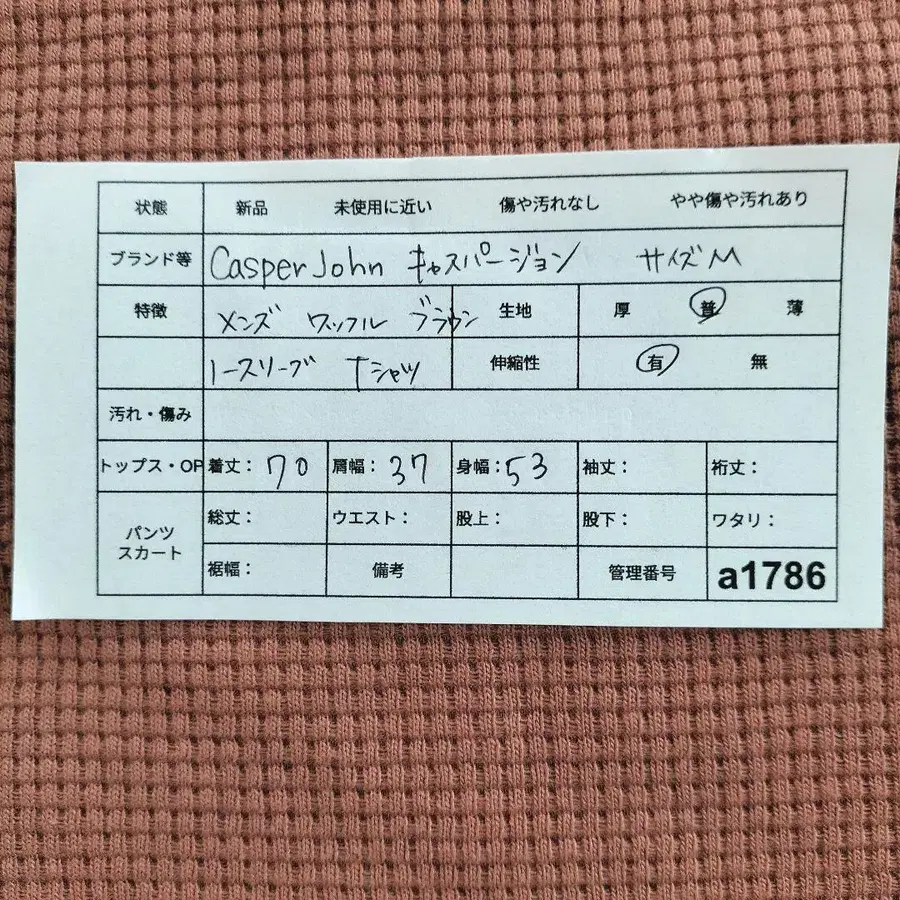 状態 新品 未使用に近い 傷や汚れなし やや傷や汚れあり
ブランド等 Casper John キャスパージョン サイズM
特徴 メンズ ワッフル ブラウン 生地 厚 普 薄
ノースリーブ Tシャツ 伸縮性 有 無
汚れ・傷み
トップス・OP 着丈: 70 肩幅: 37 身幅: 53 袖丈: 裄丈:
パンツ スカート 総丈: ウエスト: 股上: 股下: ワタリ:
裾幅: 備考 管理番号 a1786